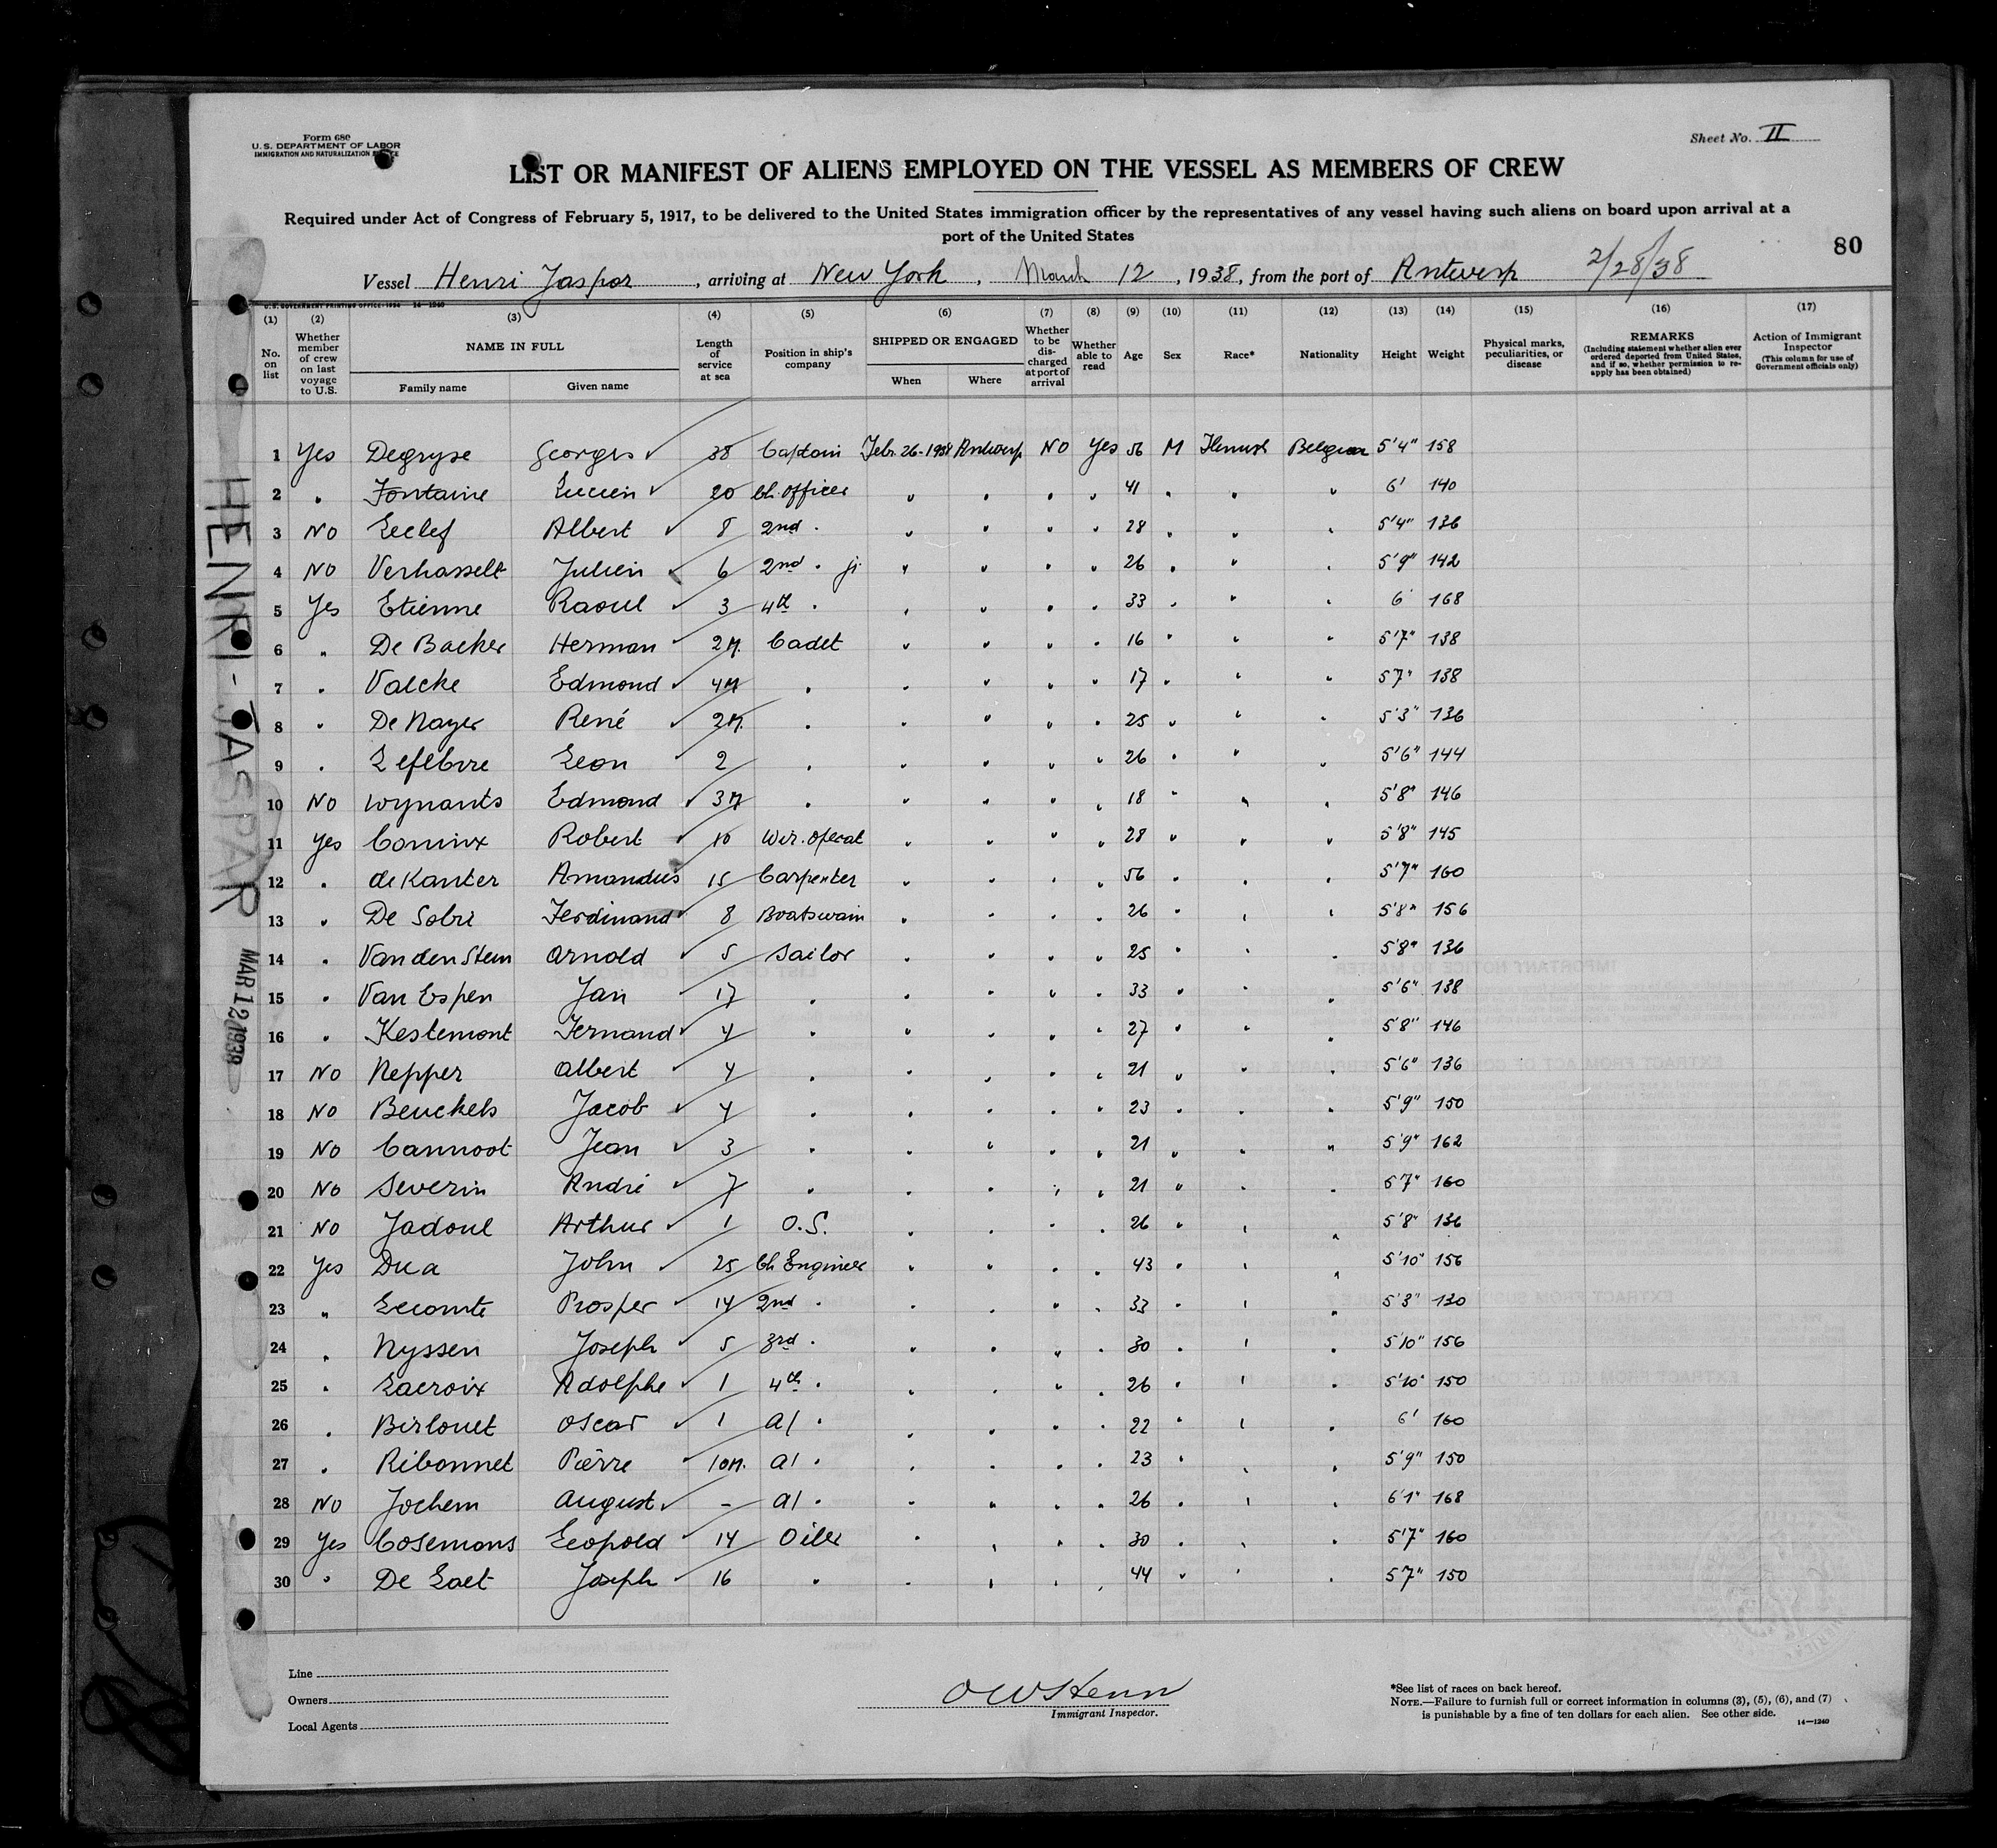 Form 680
U.S. DEPARTMENT OF LABOR
IMMIGRATION AND NATURALIZATION SERVICE
Sheet No. II
LIST OR MANIFEST OF ALIENS EMPLOYED ON THE VESSEL AS MEMBERS OF CREW
Required under Act of Congress of February 5, 1917, to be delivered to the United States immigration officer by the representatives of any vessel having such aliens on board upon arrival at a
port of the United States
80
Vessel Henri Jaspar, arriving at New York, March 12, 1938, from the port of Antwerp 2/28/38
U.S. GOVERNMENT PRINTING OFFICE: 1936 14-1240
(1) (2) (3) (4) (5) (6) (7) (8) (9) (10) (11) (12) (13) (14) (15) (16) (17)
No. on list
Whether member of crew on last voyage to U.S.
NAME IN FULL
Family name Given name
Length of service at sea
Position in ship's company
SHIPPED OR ENGAGED
When Where
Whether to be discharged at port of arrival
Whether able to read
Age Sex Race* Nationality Height Weight
Physical marks, peculiarities, or disease
REMARKS
(Including statement whether alien ever ordered deported from United States, and if so, whether permission to reapply has been obtained)
Action of Immigrant Inspector
(This column for use of Government officials only)
1 Yes Degryse Georges 38 Captain Febr. 26-1938 Antwerp NO Yes 56 M Flemish Belgian 5'4" 158
2 " Fontaine Lucien 20 Ch. officer " " " " 41 " " " 6' 140
3 NO Leclef Albert 8 2nd " " " " " 28 " " " 5'4" 136
4 NO Verhasselt Julien 6 2nd " jr " " " " 26 " " " 5'9" 142
5 Yes Etienne Raoul 3 4th " " " " " 33 " " " 6' 168
6 " De Backer Herman 2M. Cadet " " " " 16 " " " 5'7" 138
7 " Valcke Edmond 4M " " " " " 17 " " " 5'7" 138
8 " De Nayer René 2M. " " " " " 25 " " " 5'3" 136
9 " Lefebvre Leon 2 " " " " " 26 " " " 5'6" 144
10 NO Wynants Edmond 3M " " " " " 18 " " " 5'8" 146
11 Yes Coninx Robert 10 Wir. operat " " " " 28 " " " 5'8" 145
12 " de Kanter Amandus 15 Carpenter " " " " 56 " " " 5'7" 160
13 " De Sobrie Ferdinand 8 Boatswain " " " " 26 " " " 5'8" 156
14 " Van den Stem Arnold 5 Sailor " " " " 25 " " " 5'8" 136
15 " Van Espen Jan 17 " " " " " 33 " " " 5'6" 138
16 " Kestemont Fernand 4 " " " " " 27 " " " 5'8" 146
17 NO Nepper Albert 4 " " " " " 21 " " " 5'6" 136
18 NO Beuckels Jacob 4 " " " " " 23 " " " 5'9" 150
19 NO Cannoot Jean 3 " " " " " 21 " " " 5'9" 162
20 NO Severin André 7 " " " " " 21 " " " 5'7" 160
21 NO Jadoul Arthur 1 O.S. " " " " 26 " " " 5'8" 136
22 Yes Dua John 25 Ch Engineer " " " " 43 " " " 5'10" 156
23 " Lecomte Prosper 14 2nd " " " " " 33 " " " 5'3" 130
24 " Nyssen Joseph 5 3rd " " " " " 30 " " " 5'10" 156
25 " Lacroix Adolphe 1 4th " " " " " 26 " " " 5'10" 150
26 " Birlouet Oscar 1 a/ " " " " " 22 " " " 6' 160
27 " Ribonnet Pierre 10M. a/ " " " " " 23 " " " 5'9" 150
28 NO Jochem August - a/ " " " " " 26 " " " 6'1" 168
29 Yes Cosemans Leopold 14 Oiler " " " " 30 " " " 5'7" 160
30 " De Laet Joseph 16 " " " " " 44 " " " 5'7" 150
HENRI-JASPAR
MAR 12 1938
Line
Owners
Local Agents
Immigrant Inspector.
*See list of races on back hereof.
NOTE.—Failure to furnish full or correct information in columns (3), (5), (6), and (7)
is punishable by a fine of ten dollars for each alien. See other side.
14—1240